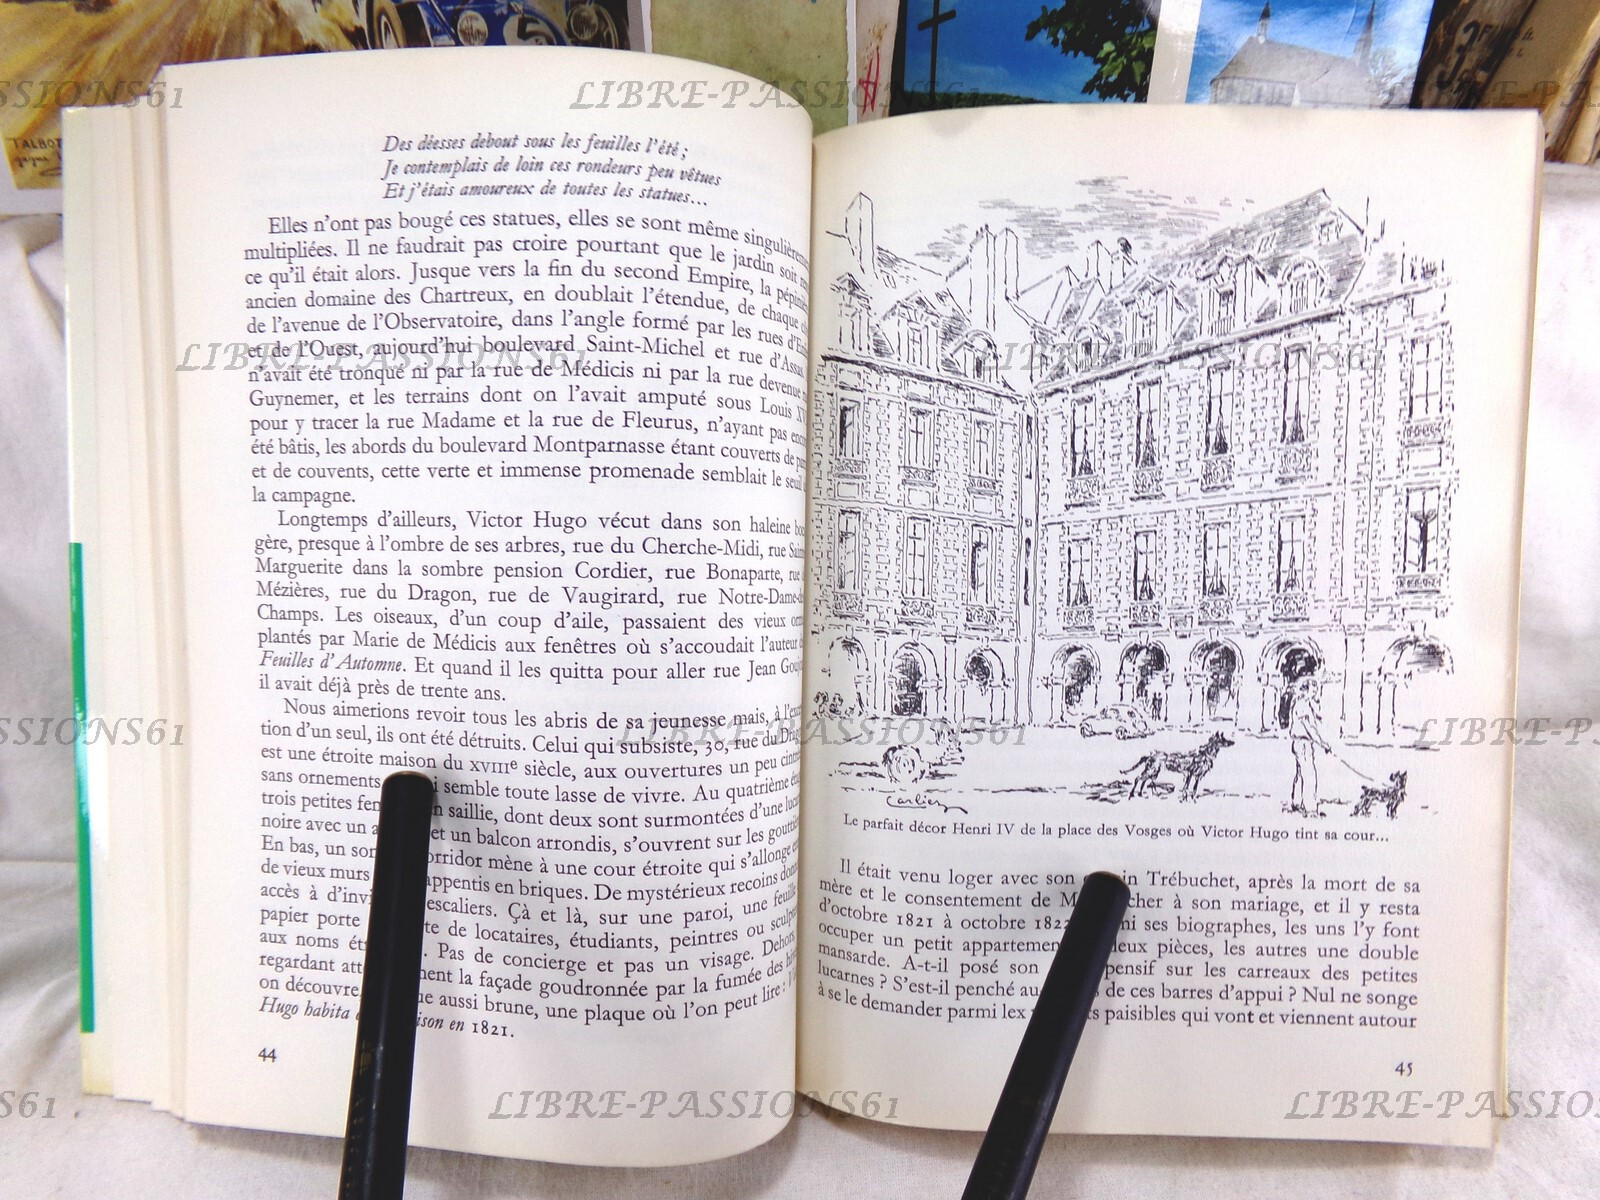 TALBOT
LIBRE-PASSIONS61
Des déesses debout sous les feuilles l'été ;
Je contemplais de loin ces rondeurs peu vêtues
Et j'étais amoureux de toutes les statues...
Elles n'ont pas bougé ces statues, elles se sont même
multipliées. Il ne faudrait pas croire pourtant que le jardin soit
ce qu'il était alors. Jusque vers la fin du second Empire, la
ancien domaine des Chartreux, en doublait l'étendue, de chaque
de l'avenue de l'Observatoire, dans l'angle formé par les rues
et de l'Ouest, aujourd'hui boulevard Saint-Michel et rue d'Assas,
n'avait été tronqué ni par la rue de Médicis ni par la rue devenue
Guynemer, et les terrains dont on l'avait amputé sous Louis
pour y tracer la rue Madame et la rue de Fleurus, n'ayant pas
été bâtis, les abords du boulevard Montparnasse étant couverts de
et de couvents, cette verte et immense promenade semblait le
la campagne.
Longtemps d'ailleurs, Victor Hugo vécut dans son haleine
gère, presque à l'ombre de ses arbres, rue du Cherche-Midi, rue
Marguerite dans la sombre pension Cordier, rue Bonaparte,
Mézières, rue du Dragon, rue de Vaugirard, rue
Champs. Les oiseaux, d'un coup d'aile, passaient des vieux
plantés par Marie de Médicis aux fenêtres où s'accoudait l'auteur
Feuilles d'Automne. Et quand il les quitta pour aller rue Jean
il avait déjà près de trente ans.
Nous aimerions revoir tous les abris de sa jeunesse mais, à
tion d'un seul, ils ont été détruits. Celui qui subsiste, 30, rue du
est une étroite maison du XVIIIe siècle, aux ouvertures un peu
sans ornements semble toute lasse de vivre. Au quatrième
trois petites saillie, dont deux sont surmontées d'une
noire avec un et un balcon arrondis, s'ouvrent sur les
En bas, un corridor mène à une cour étroite qui s'allonge
de vieux murs appentis en briques. De mystérieux recoins
accès à escaliers. Çà et là, sur une paroi, une
papier porte de locataires, étudiants, peintres ou
aux noms Pas de concierge et pas un visage. Dehors,
regardant la façade goudronnée par la fumée des
on découvre, aussi brune, une plaque où l'on peut lire :
Hugo habita en 1821.
44
Carlier
Le parfait décor Henri IV de la place des Vosges où Victor Hugo tint sa cour...
Il était venu loger avec son Trébuchet, après la mort de sa
mère et le consentement de à son mariage, et il y resta
d'octobre 1821 à octobre ses biographes, les uns l'y font
occuper un petit appartement deux pièces, les autres une double
mansarde. A-t-il posé son pensif sur les carreaux des petites
lucarnes ? S'est-il penché de ces barres d'appui ? Nul ne songe
à se le demander parmi lex paisibles qui vont et viennent autour
45